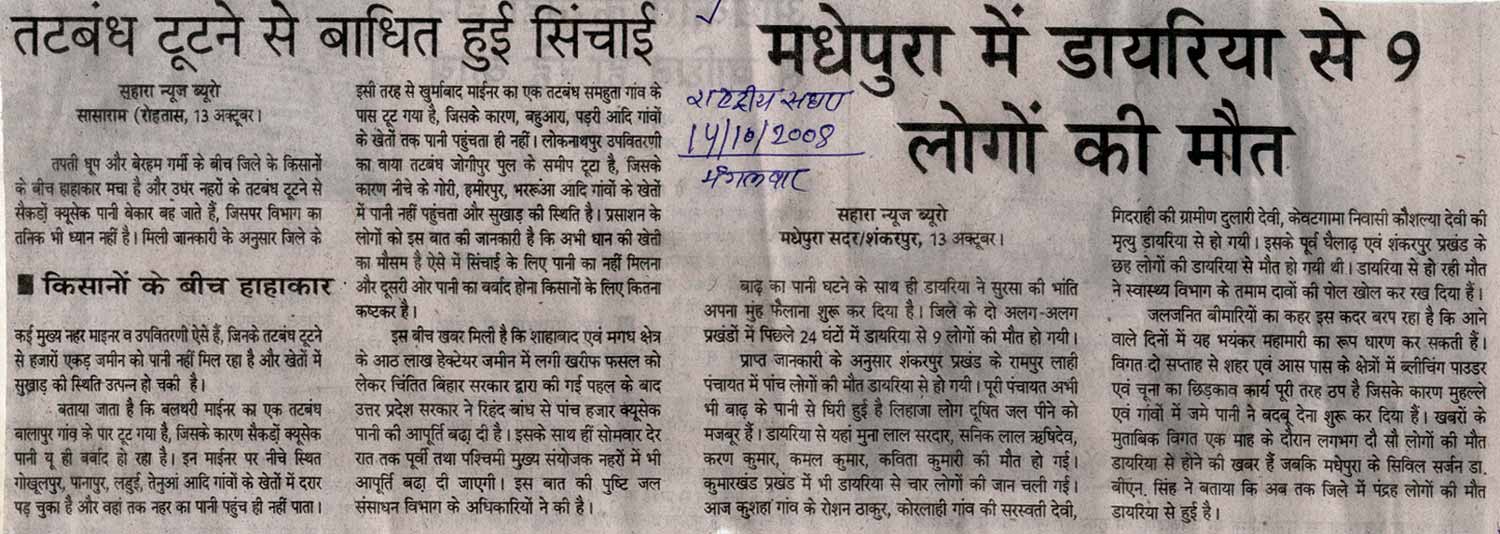 तटबंध टूटने से बाधित हुई सिंचाई
सहारा न्यूज ब्यूरो
सासाराम (रोहतास, 13 अक्टूबर।
तपती धूप और बेरहम गर्मी के बीच जिले के किसानों
के बीच हाहाकार मचा है और उधर नहरों के तटबंध टूटने से
सैकड़ों क्यूसेक पानी बेकार बह जाते हैं, जिसपर विभाग का
तनिक भी ध्यान नहीं है। मिली जानकारी के अनुसार जिले के
■ किसानों के बीच हाहाकार
कई मुख्य नहर माइनर व उपवितरणी ऐसे हैं, जिनके तटबंध टूटने
से हजारों एकड़ जमीन को पानी नहीं मिल रहा है और खेतों में
सुखाड़ की स्थिति उत्पन्न हो चकी है।
बताया जाता है कि बलथरी माईनर का एक तटबंध
बालापुर गांव के पार टूट गया है, जिसके कारण सैकड़ों क्यूसेक
पानी यू ही बर्वाद हो रहा है। इन माईनर पर नीचे स्थित
गोखूलपुर, पानापुर, लहुई, तेनुआं आदि गांवों के खेतों में दरार
पड़ चुका है और वहां तक नहर का पानी पहुंच ही नहीं पाता।
इसी तरह से खुर्माबाद माईनर का एक तटबंध समहुता गांव के
पास टूट गया है, जिसके कारण, बहुआरा, पड़री आदि गांवों
के खेतों तक पानी पहुंचता ही नहीं। लोकनाथपुर उपवितरणी
का वाया तटबंध जोगीपुर पुल के समीप टूटा है, जिसके
कारण नीचे के गोरी, हमीरपुर, भररूआ आदि गांवों के खेतों
में पानी नहीं पहुंचता और सुखाड़ की स्थिति है। प्रसाशन के
लोगों को इस बात की जानकारी है कि अभी धान की खेती
का मौसम है ऐसे में सिंचाई के लिए पानी का नहीं मिलना
और दूसरी ओर पानी का बर्वाद होना किसानों के लिए कितना
कष्टकर है।
इस बीच खबर मिली है कि शाहाबाद एवं मगध क्षेत्र
के आठ लाख हेक्टेयर जमीन में लगी खरीफ फसल को
लेकर चिंतित बिहार सरकार द्वारा की गई पहल के बाद
उत्तर प्रदेश सरकार ने रिहंद बांध से पांच हजार क्यूसेक
पानी की आपूर्ति बढ़ा दी है। इसके साथ हीं सोमवार देर
रात तक पूर्वी तथा पश्चिमी मुख्य संयोजक नहरों में भी
आपूर्ति बढ़ा दी जाएगी। इस बात की पुष्टि जल
संसाधन विभाग के अधिकारियों ने की है।
मधेपुरा में डायरिया से 9
लोगों की मौत
राष्ट्रीय सहारा
14/10/2008
मंगलवार
सहारा न्यूज ब्यूरो
मधेपुरा सदर/शंकरपुर, 13 अक्टूबर।
बाढ़ का पानी घटने के साथ ही डायरिया ने सुरसा की भांति
अपना मुंह फैलाना शुरू कर दिया है। जिले के दो अलग-अलग
प्रखंडों में पिछले 24 घंटों में डायरिया से 9 लोगों की मौत हो गयी।
प्राप्त जानकारी के अनुसार शंकरपुर प्रखंड के रामपुर लाही
पंचायत में पांच लोगों की मौत डायरिया से हो गयी। पूरी पंचायत अभी
भी बाढ़ के पानी से घिरी हुई है लिहाजा लोग दूषित जल पीने को
मजबूर हैं। डायरिया से यहां मुना लाल सरदार, सनिक लाल ऋषिदेव,
करण कुमार, कमल कुमार, कविता कुमारी की मौत हो गई।
कुमारखंड प्रखंड में भी डायरिया से चार लोगों की जान चली गई।
आज कुशहा गांव के रोशन ठाकुर, कोरलाही गांव की सरस्वती देवी,
गिदराही की ग्रामीण दुलारी देवी, केवटगामा निवासी कौशल्या देवी की
मृत्यु डायरिया से हो गयी। इसके पूर्व घैलाढ़ एवं शंकरपुर प्रखंड के
छह लोगों की डायरिया से मौत हो गयी थी। डायरिया से हो रही मौत
ने स्वास्थ्य विभाग के तमाम दावों की पोल खोल कर रख दिया हैं।
जलजनित बीमारियों का कहर इस कदर बरप रहा है कि आने
वाले दिनों में यह भयंकर महामारी का रूप धारण कर सकती हैं।
विगत दो सप्ताह से शहर एवं आस पास के क्षेत्रों में ब्लीचिंग पाउडर
एवं चूना का छिड़काव कार्य पूरी तरह ठप है जिसके कारण मुहल्ले
एवं गांवों में जमे पानी ने बदबू देना शुरू कर दिया हैं। खबरों के
मुताबिक विगत एक माह के दौरान लगभग दौ सौ लोगों की मौत
डायरिया से होने की खबर हैं जबकि मधेपुरा के सिविल सर्जन डा.
बीएन. सिंह ने बताया कि अब तक जिले में पंद्रह लोगों की मौत
डायरिया से हुई है।